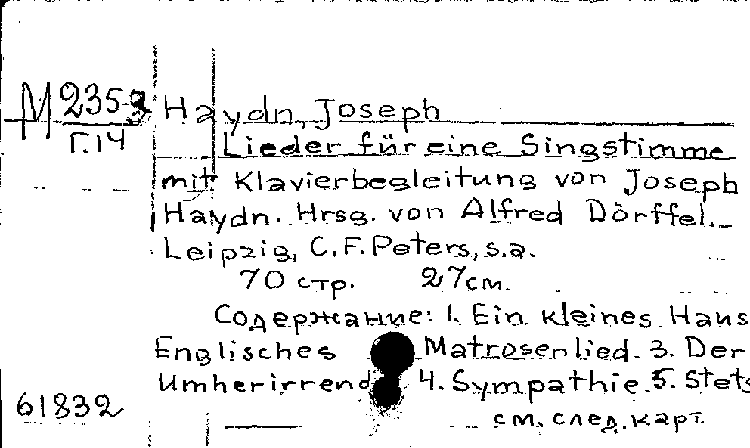 М 235-3 Haydn, Joseph
Г.14
Lieder für eine Singstimme
mit Klavierbegleitung von Joseph
Haydn. Hrsg. von Alfred Dörffel._
Leipzig, C.F. Peters, s.a.
70 стр. 27см.
Содержание: 1. Ein kleines Haus
Englisches Matrosenlied. 3. Der
Umherirrend 4. Sympathie. 5. Stets
61832
см. след. карт.